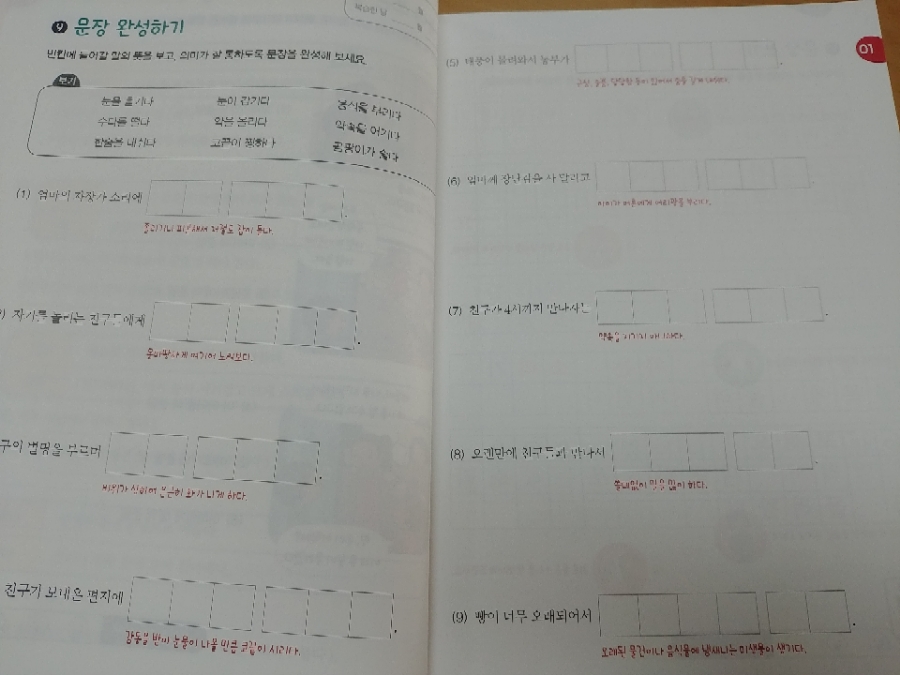 9 문장 완성하기
빈칸에 들어갈 말의 뜻을 보고, 의미가 잘 통하도록 문장을 완성해 보세요.
보기
눈물 흘리다 눈이 감기다
수다를 떨다 약을 올리다 약속을 어기다
한숨을 내쉬다 코끝이 찡하다 곰팡이가 슬다
(1) 엄마의 자장가 소리에
졸리거나 피곤해서 저절로 잠이 들다.
자기를 놀리는 친구들에게
못마땅하게 여기어 노려보다.
별명을 부르며
비위가 상하여 은근히 화가 나게 하다.
친구가 보내온 편지에
감동을 받아 눈물이 나올 만큼 코끝이 시리다.
01
(5) 태풍이 몰려와서 농부가
(6) 엄마께 장난감을 사 달라고
(7) 친구가 4시까지 만나자는
약속을 지키지 아니하다.
(8) 오랜만에 친구들과 만나서
쓸데없이 말을 많이 하다.
(9) 빵이 너무 오래되어서
오래된 물건이나 음식물에 냄새나는 미생물이 생기다.